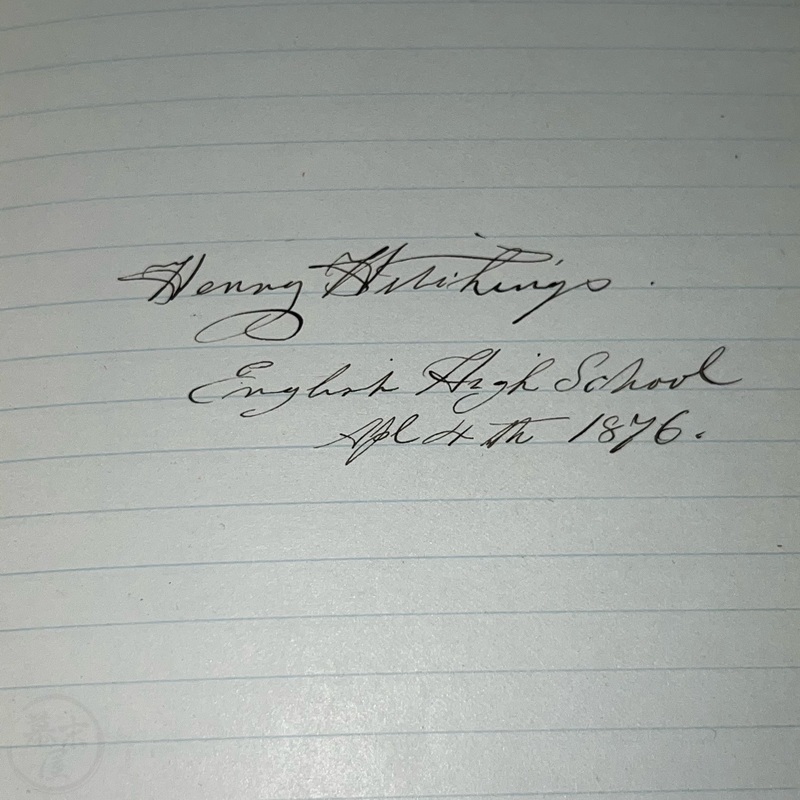 Henry Hitchings.
English High School
Apl 4th 1876.